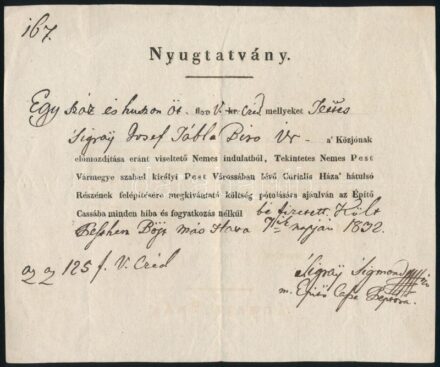 167.
Nyugtatvány.
Egy száz és huszon öt. flor V. kr. Créd mellyeket Tettes
Sigray Josef Tábla Biro Ur - a' Közjónak
előmozditása eránt viseltető Nemes indulatból, Tekintetes Nemes Pest
Vármegye szabad királyi Pest Várossában lévő Curiális Háza' hátulsó
Részének felépitésére megkivántató költség pótolására ajánlván az Építő
Cassába minden hiba és fogyatkozás nélkül be fizetett. Költ
Pesthen Böjt más Hava 7ik napján 1832.
az az 125 f. V. Créd
Sigray Sigmond
m. Építő Cassa